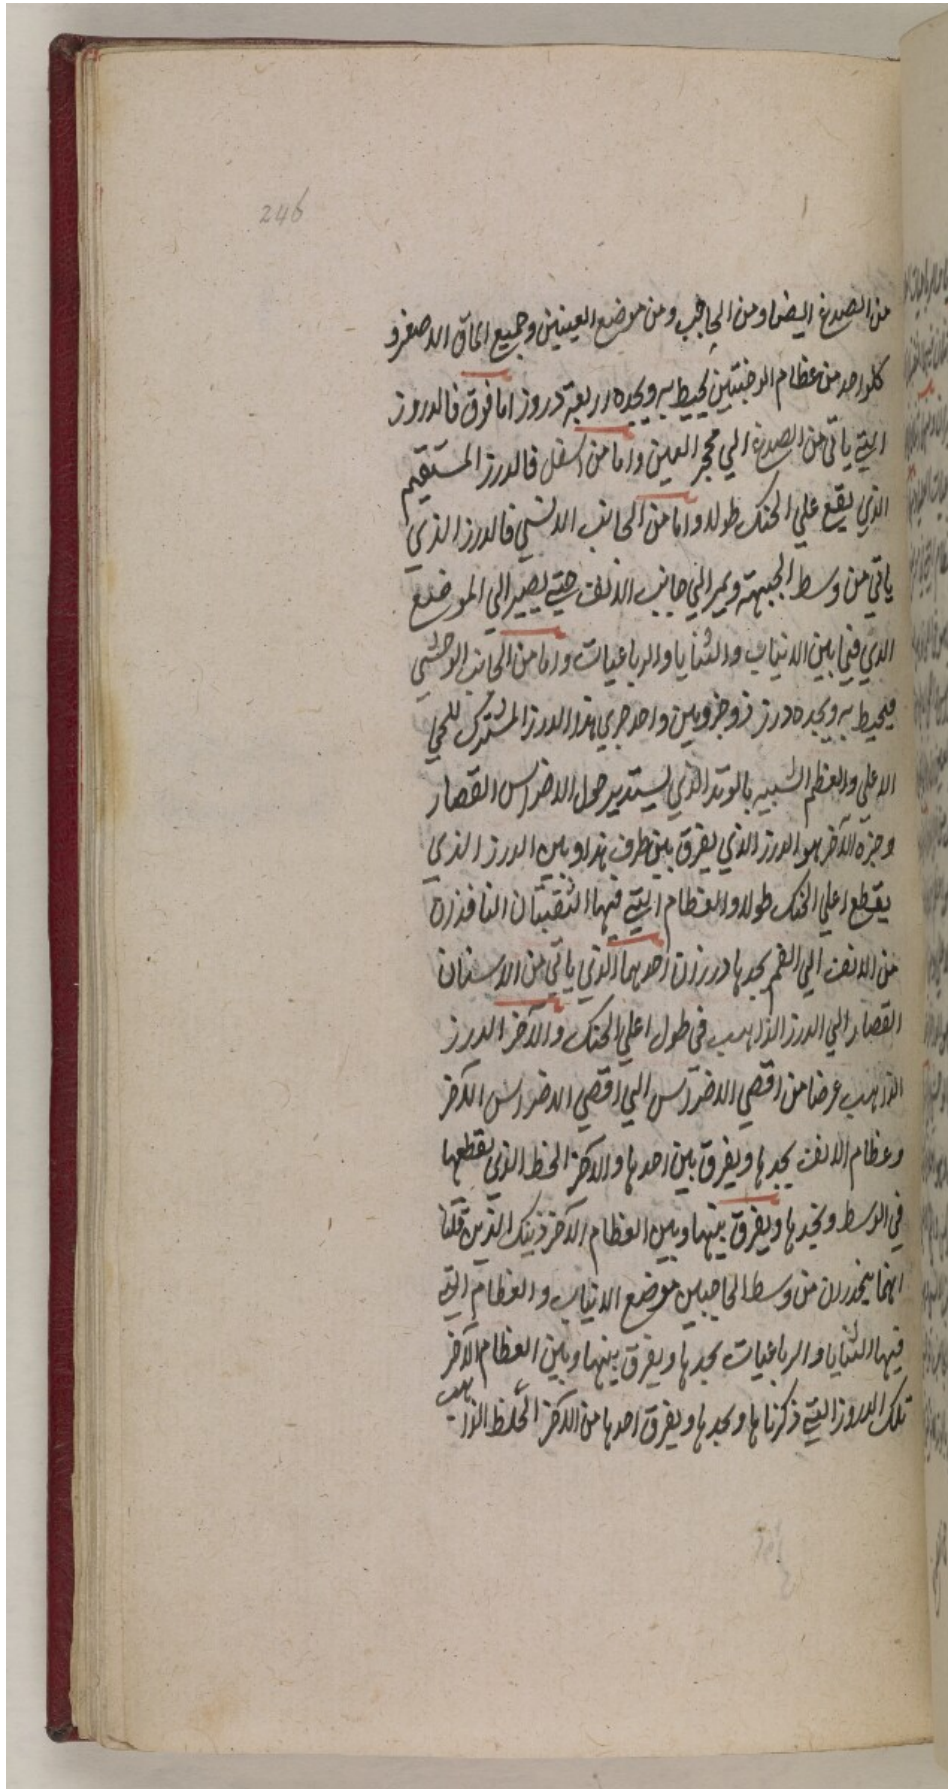 246
من الصدغ ايضا ومن الحاجب ومن موضع العينين وجميع الماق الاصغر و
كلواحد من عظام الوجنتين يحيط به ويحده اربعة دروز اما فوق فالدروز
التي ياتي من الصدغ الي محجر العين واما من اسفل فالدرز المستقيم
الذي يقع علي الحنك طولا واما من الجانب الانسي فالدرز الذي
ياتي من وسط الجبهة ويمر الي جانب الانف حتي يصير الي الموضع
الذي فيما بين الانياب والثنايا والرباعيات واما من الجانب الوحشي
فيحيط به ويحده درز ذو جزوين واحد جزي هذا الدرز المشترك للحي
الاعلي والعظم الشبيه بالوتد الذي يستدير حول الاضراس القصار
وجزه الآخر هو الدرز الذي يفرق بين طرف هذا وبين الدرز الذي
يقطع اعلي الحنك طولا والعظام التي فيها الثقبتان النافذة
من الانف الي الفم يحدها درزان احدهما الذي ياتي من الاسنان
القصار الي الدرز الذاهب في طول اعلي الحنك والآخر الدرز
الذاهب عرضا من اقصي الاضراس الي اقصي الاضراس الآخر
وعظام الانف يحدها ويفرق بين احدها والآخر الخط الذي يقطعها
في الوسط ويحدها ويفرق بينها وبين العظام الآخر ذينك الذين قلنا
انهما ينحدران من وسط الحاجبين موضع الانياب والعظام التي
فيها الثنايا والرباعيات يحدها ويفرق بينها وبين العظام الآخر
تلك الدروز التي ذكرناها ويحدها ويفرق احدها من الآخر الخط الذاهب